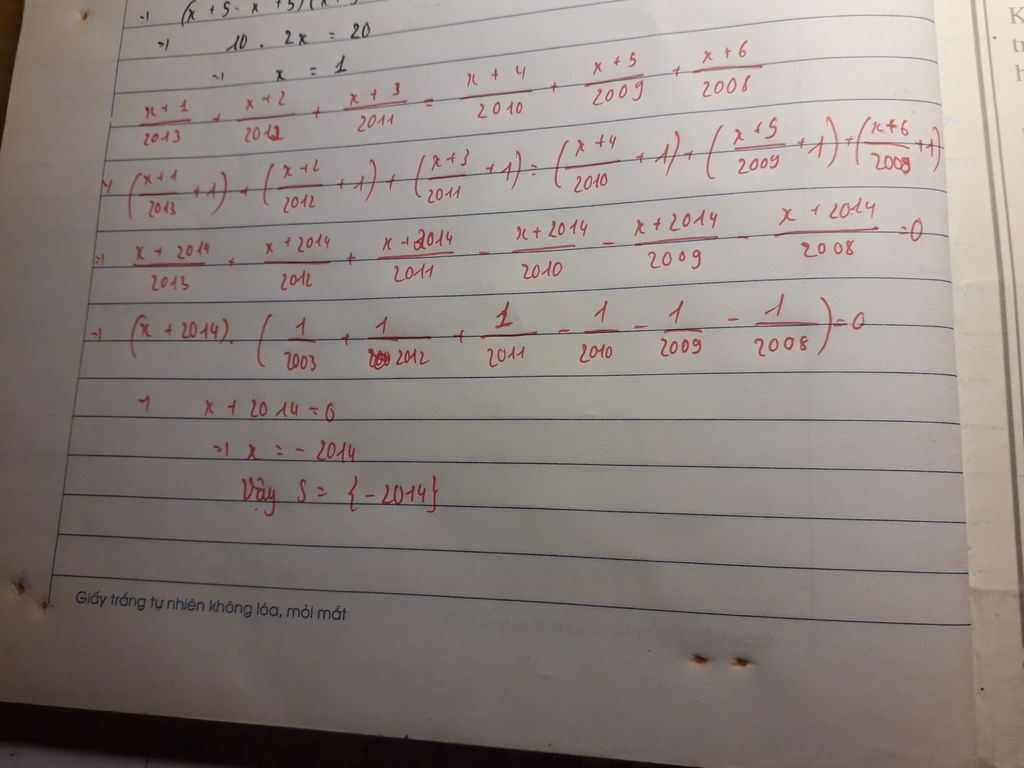 => (x + 5 - x + 5)(x
=> 10 . 2x = 20
=> x = 1
x+1/2013 + x+2/2012 + x+3/2011 = x+4/2010 + x+5/2009 + x+6/2008
=> (x+1/2013 + 1) + (x+2/2012 + 1) + (x+3/2011 + 1) = (x+4/2010 + 1) + (x+5/2009 + 1) + (x+6/2008 + 1)
=> x+2014/2013 + x+2014/2012 + x+2014/2011 - x+2014/2010 - x+2014/2009 - x+2014/2008 = 0
=> (x + 2014) . (1/2003 + 1/2012 + 1/2011 - 1/2010 - 1/2009 - 1/2008) = 0
=> x + 2014 = 0
=> x = - 2014
Vậy S = {- 2014}
Giấy trắng tự nhiên không lóa, mỏi mắt
K
tr
h